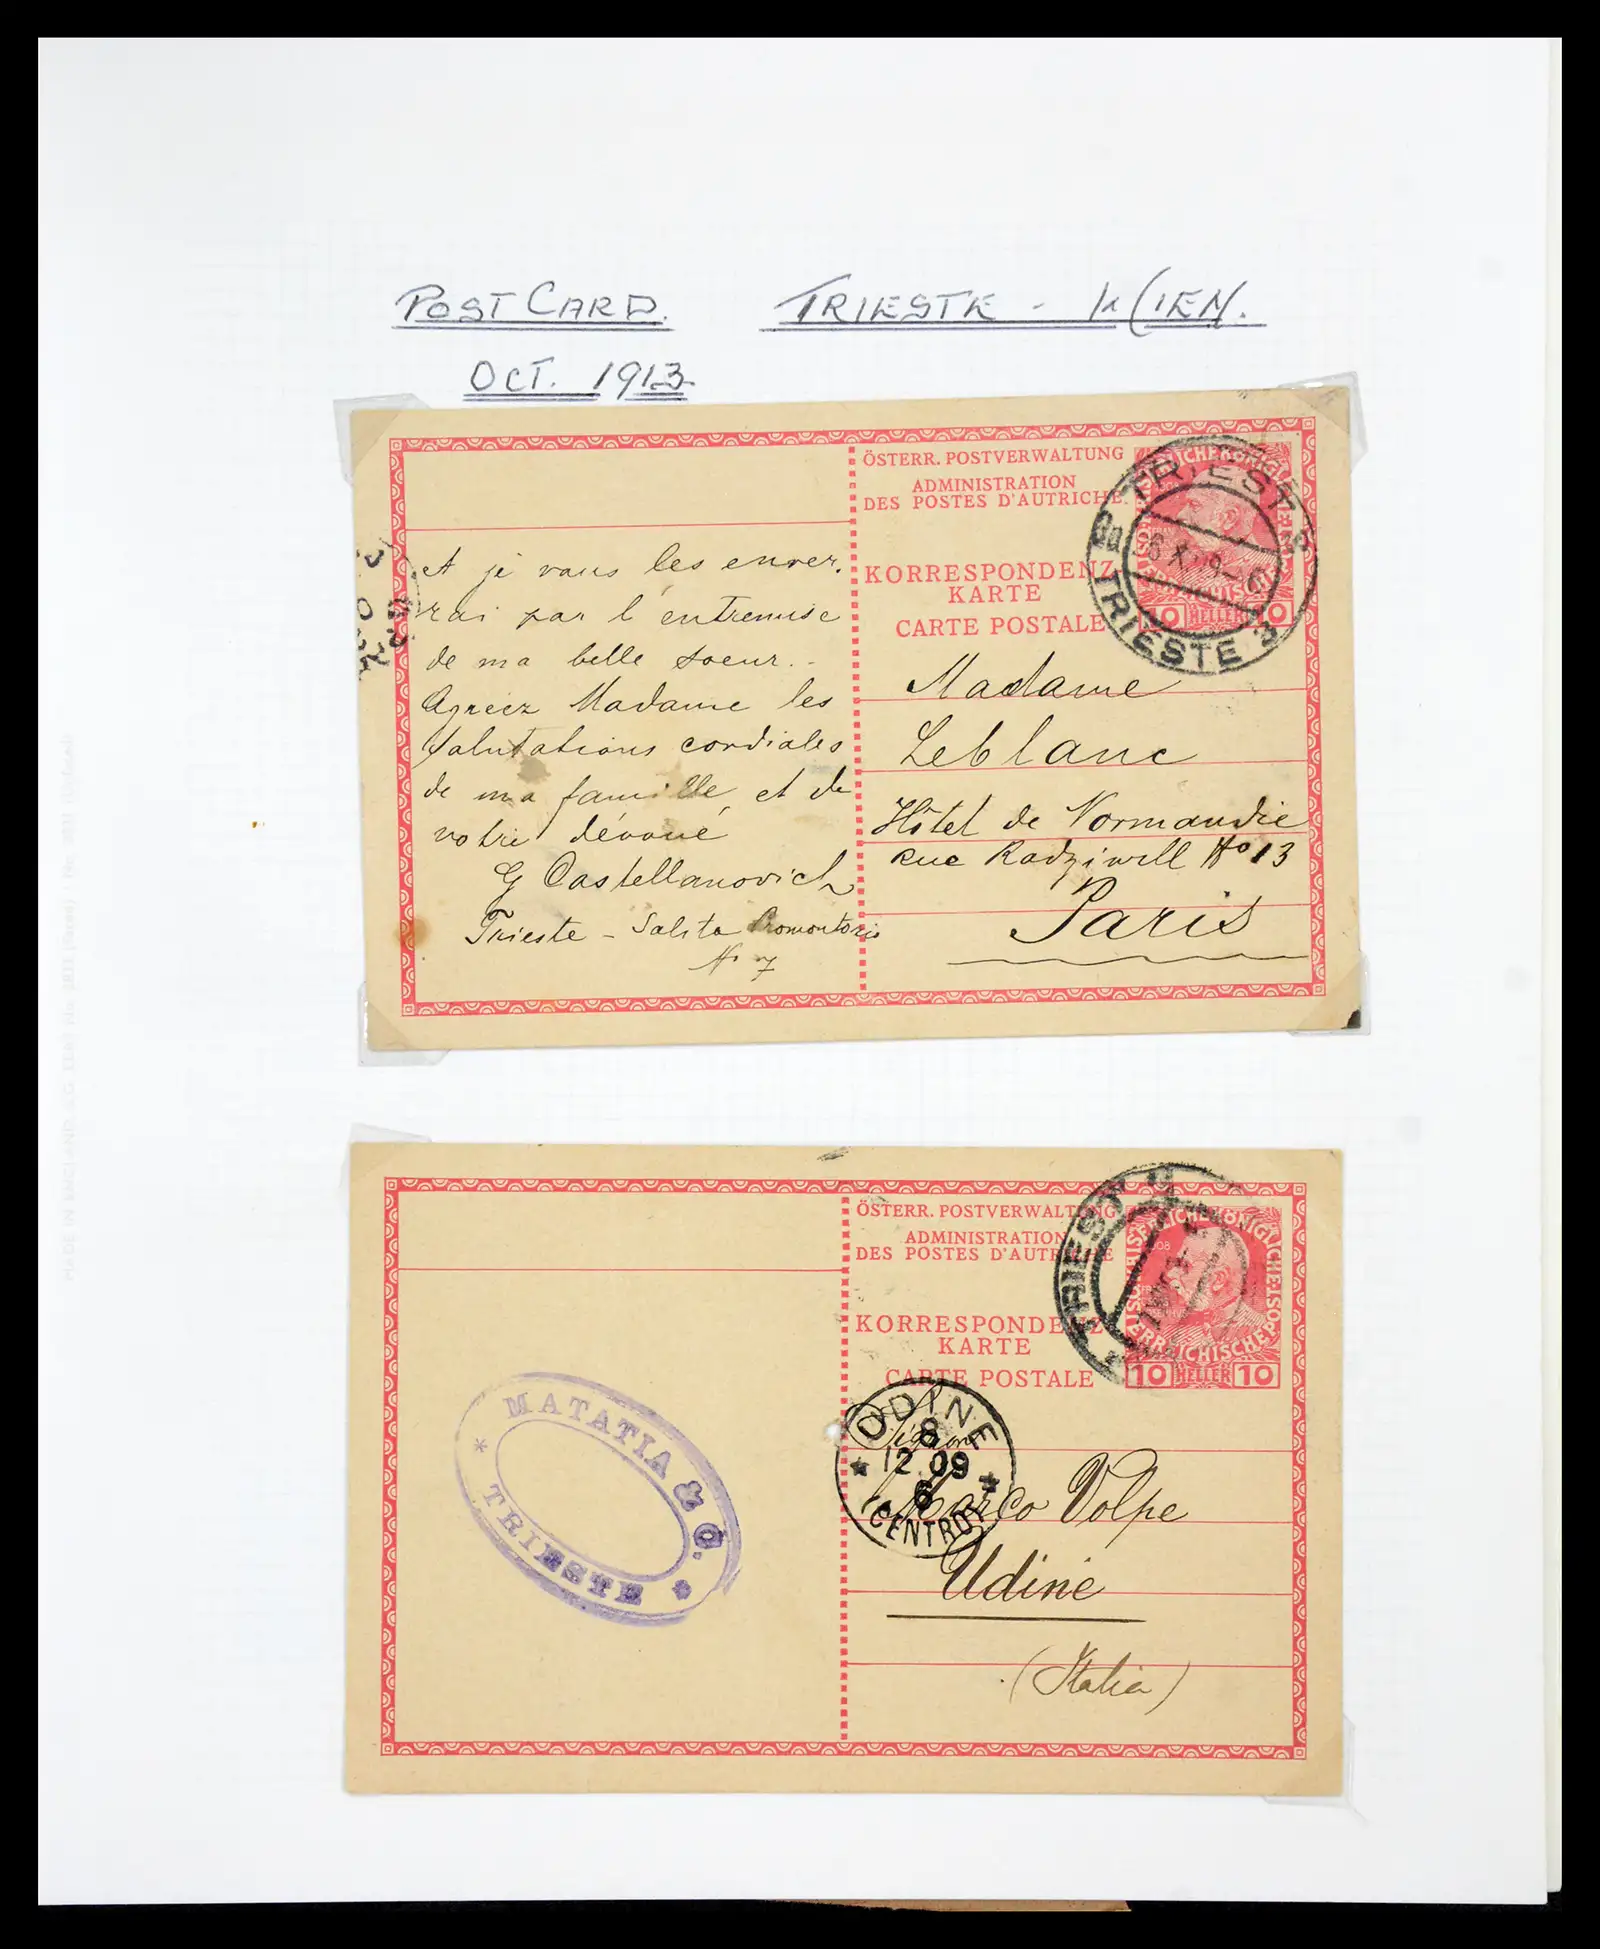 POST CARD. TRIESTE - WIEN.
OCT. 1913
ÖSTERR. POSTVERWALTUNG
ADMINISTRATION
DES POSTES D'AUTRICHE.
KORRESPONDENZ
KARTE
CARTE POSTALE
10 HELLER 10
TRIEST 3
TRIESTE 3
Et je vous les enver.
rai par l'entremise
de ma belle soeur. -
Agréez Madame les
salutations cordiales
de ma famille, et de
votre dévoué
G Castellanovich
Trieste - Salita Promontorio
No 7
Madame
Leblanc
Hôtel de Normandie
Rue Radziwill No 13
Paris
ÖSTERR. POSTVERWALTUNG
ADMINISTRATION
DES POSTES D'AUTRICHE
KORRESPONDENZ
KARTE
CARTE POSTALE
10 HELLER 10
TRIEST
MATATIA & Co.
* TRIESTE *
UDINE
8
12.09
6
(CENTRO)
Marco Volpe
Udine
(Italia)